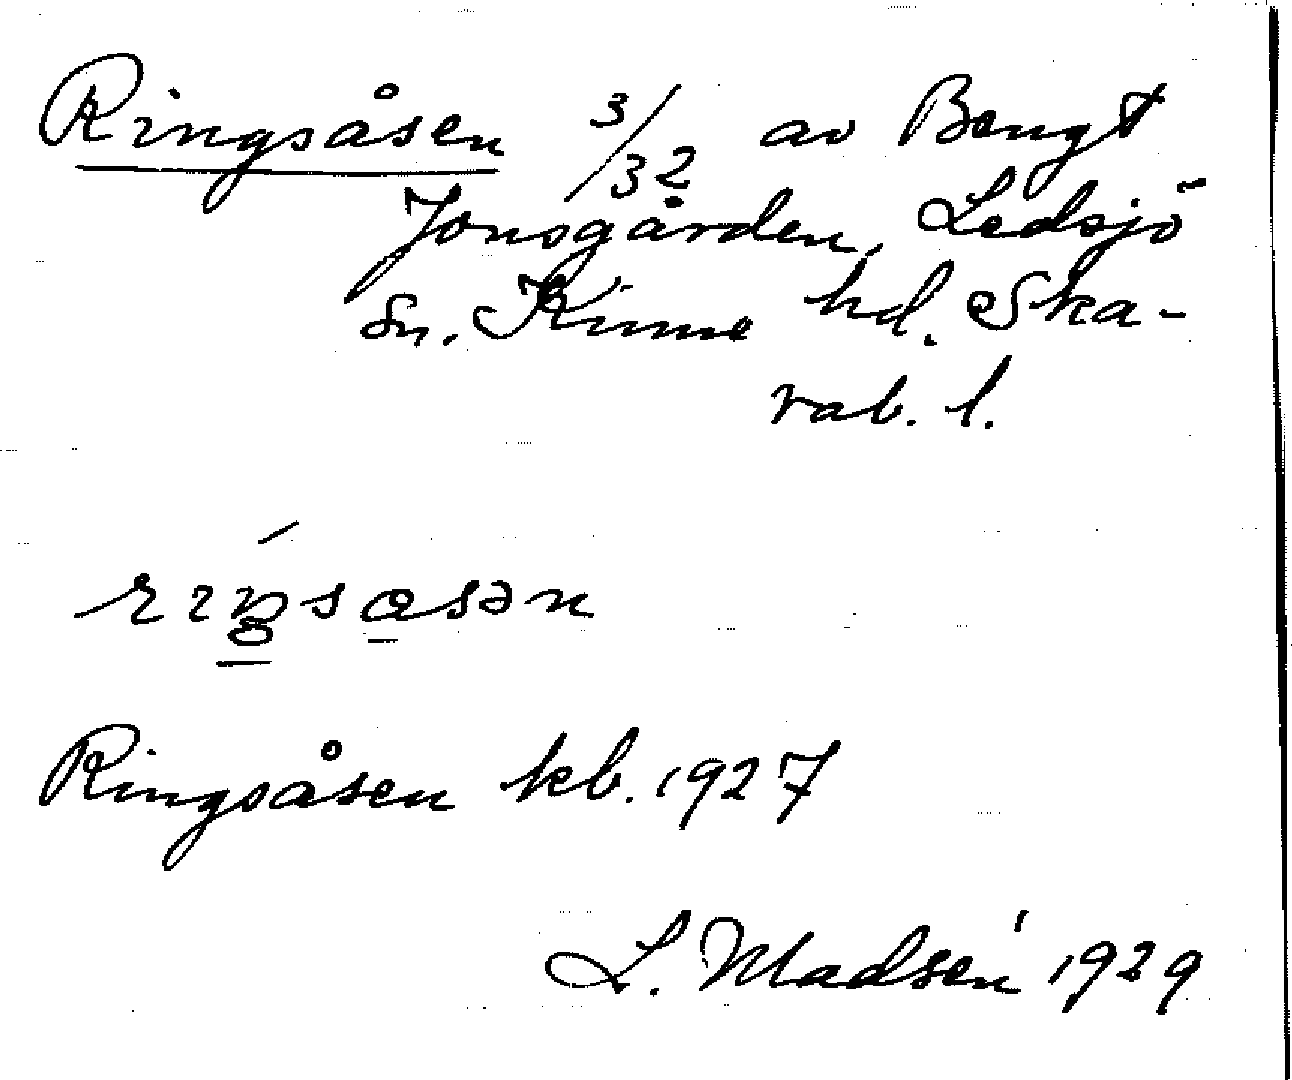 Ringsåsen 3/32 av Bengt
Jonsgården, Ledsjö
sn. Kinne hd. Ska-
rab. l.
Ringsåsen kb. 1927
L. Madsén 1929